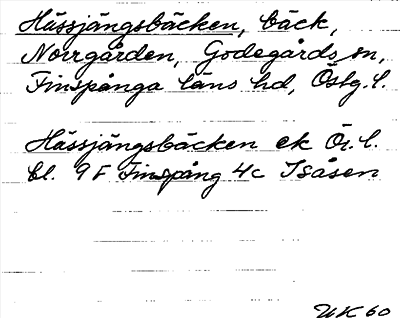 Hässjängsbäcken, bäck,
Norrgården, Godegårds sn,
Finspånga läns hd, Östg. l.
Hässjängsbäcken ek Ög. l.
bl. 9F Finspång 4c Isåsen
UK 60